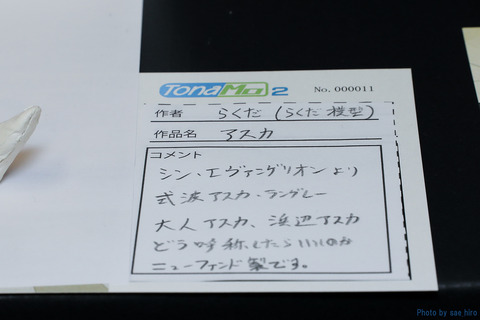 TonaMo 2
No. 000011
作者 らくだ (らくだ模型)
作品名 アスカ
コメント
シン・エヴァンゲリオンより
式波アスカ・ラングレー
大人アスカ、浜辺アスカ
どう呼称したらいいのか
ニューファンド製です。
Photo by sae hiro